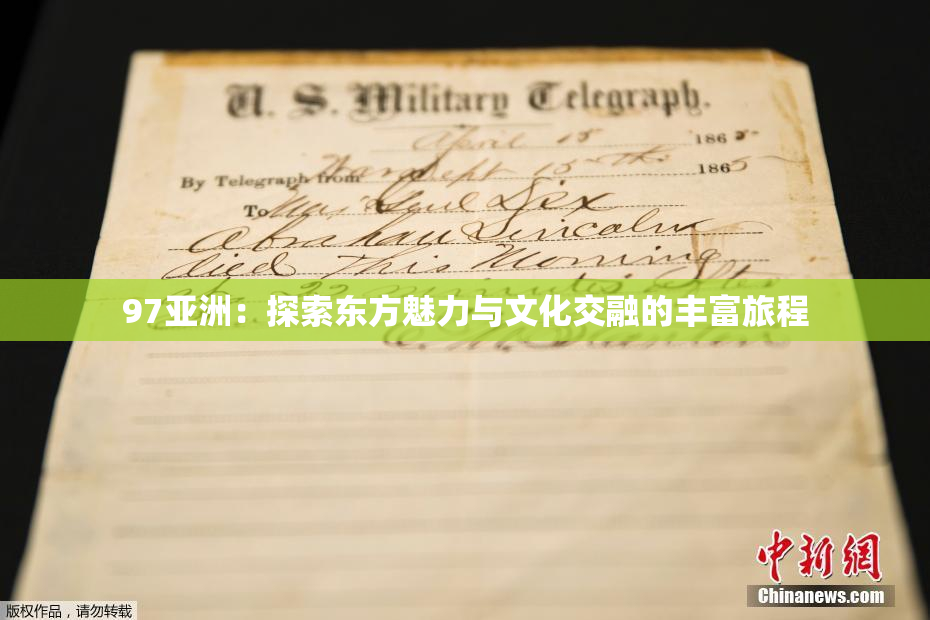 U. S. Military Telegraph.
April 15 1865
By Telegraph from War Dept 15th 1865
To Maj Genl Dix
Abraham Lincoln
died This Morning
22 minutes after
97亚洲：探索东方魅力与文化交融的丰富旅程
中新网
Chinanews.com
版权作品，请勿转载